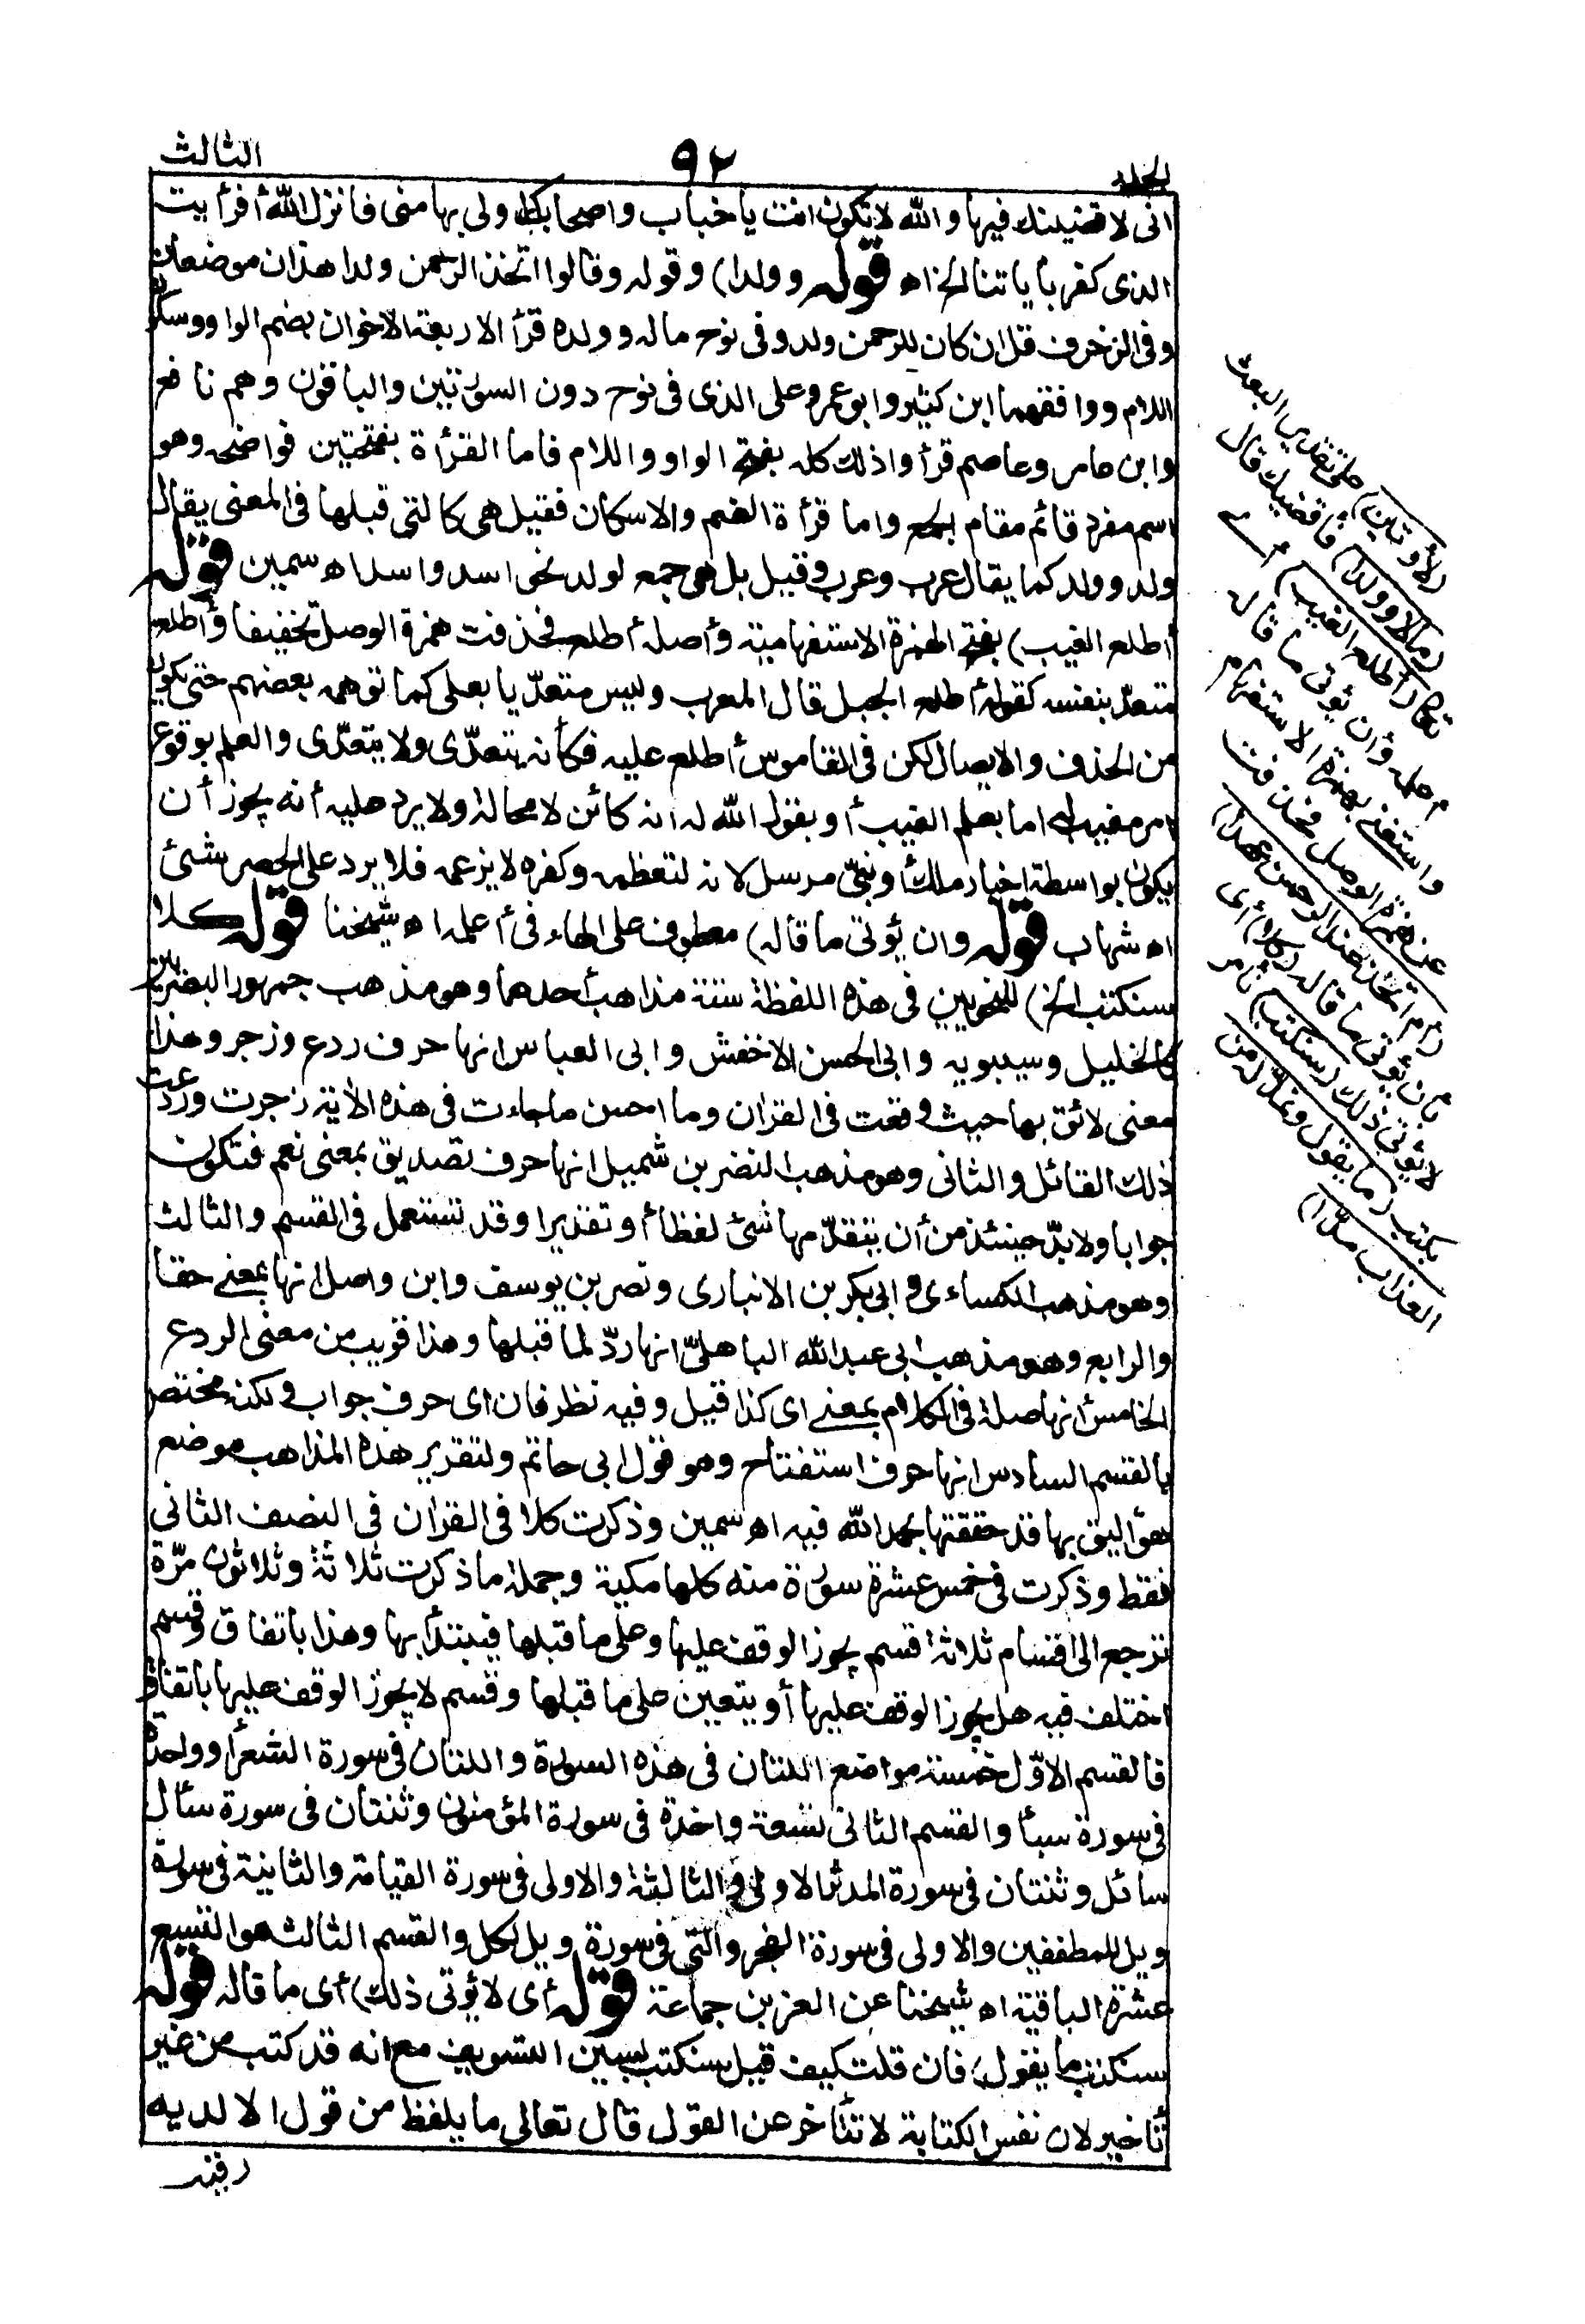 الجلد
٩٢
الثالث
انى لاقضينك فيها والله لا تكون انت يا خباب واصحابك اولى بها منى فانزل الله أفرأيت
الذى كفر بأياتنا الخ اه قوله وولدا) وقوله وقالوا اتخذ الرحمن ولدا هذان موضعان
وفى الزخرف قل ان كان للرحمن ولد وفى نوح ماله وولده قرأ الاربعة الاخوان بضم الواو وسكون
اللام ووافقهما ابن كثير وابو عمرو على الذى فى نوح دون السورتين والباقون وهم نافع
وابن عامر وعاصم قرأوا ذلك كله بفتح الواو واللام فاما القرأة بفتحتين فواضحه وهو
اسم مفرد قائم مقام الجمع واما قرأة الضم والاسكان فقيل هى كالتى قبلها فى المعنى يقال
ولد وولد كما يقال عرب وعرب وقيل بل هى جمع لولد نحو اسد واسد اه سمين قوله
أطلع الغيب) بفتح الهمزة الاستفهامية وأصله أاطلع فحذفت همزة الوصل تخفيفا وأطلع
متعدّ بنفسه كقوله أطلع الجبل قال المعرب وليس متعدّيا بعلى كما توهمه بعضهم حتى يكون
من الحذف والايصال لكن فى القاموس أطلع عليه فكأنه يتعدّى ولا يتعدّى والعلم بوقوع
امر مغيب له اما بعلم الغيب أو بقول الله له انه كائن لا محالة ولا يرد عليه أنه يجوز أن
يكون بواسطة اخبار ملك أو نبىّ مرسل لانه لتعظمه وكفره لا يزعمه فلا يرد على الحصر شئ
اه شهاب قوله وان يؤتى ما قاله) معطوف على الهاء فى أعلمه اه شيخنا قوله كلا
سنكتب الخ) للنحويين فى هذه اللفظة ستة مذاهب أحدها وهو مذهب جمهور البصريين
كالخليل وسيبويه وابى الحسن الاخفش وابى العباس انها حرف ردع وزجر وهذا
معنى لائق بها حيث وقعت فى القران وما احسن ما جاءت فى هذه الأية زجرت وردعت
ذلك القائل والثانى وهو مذهب النضر بن شميل انها حرف تصديق بمعنى نعم فتكون
جوابا ولابدّ حينئذ من أن يتقدّمها شئ لفظا أو تقديرا وقد تستعمل فى القسم والثالث
وهو مذهب الكساءى و ابى بكر بن الانبارى ونصر بن يوسف وابن واصل انها بمعنے حقا
والرابع وهو مذهب ابى عبدالله الباهلىّ انها ردّ لما قبلها وهذا قريب من معنى الردع
الخامس أنها صلة فى الكلام بمعنے اى كذا قيل وفيه نظر فان اى حرف جواب ولكنه مختص
بالقسم السادس انها حرف استفتاح وهو قول ابى حاتم ولتقرير هذه المذاهب موضع
هو أليق بها قد حققتها بحمد الله فيه اه سمين وذكرت كلا فى القران فى النصف الثانى
فقط وذكرت فى خمس عشرة سورة منه كلها مكية وجملة ما ذكرت ثلاثة وثلاثون مرّة
ترجع الى اقسام ثلاثة قسم يجوز الوقف عليها وعلى ما قبلها فيبتدأ بها وهذا باتفاق وقسم
اختلف فيه هل يجوز الوقف عليها أو يتعين على ما قبلها وقسم لا يجوز الوقف عليها باتفاق
فالقسم الاوّل خمسة مواضع اللتان فى هذه السورة واللتان فى سورة الشعرأ وواحدة
فى سورة سبأ والقسم الثانى تسعة واحدة فى سورة المؤمنون وثنتان فى سورة سأل
سائل وثنتان فى سورة المدثر الاولى والثالثة والاولى فى سورة القيامة والثانية فى سورة
ويل للمطففين والاولى فى سورة الفجر والتى فى سورة ويل لكل والقسم الثالث هو التسع
عشرة الباقية اه شيخنا عن العز بن جماعة قوله أى لا يؤتى ذلك) أى ما قاله قوله
سنكتب ما يقول) فان قلت كيف قيل سنكتب بسين التسويف مع انه قد كتب من غير
تأخير لان نفس الكتابة لا تتأخر عن القول قال تعالى ما يلفظ من قول الا لديه
رقيب
(لأوتين) على تقدير البعث
(مالا وولدا) فاقضيك قال
تعالى (أطلع الغيب) أے
أعلمه وأن يؤتى ما قاله
واستغنے بهمزة الاستفهام
عن همزة الوصل فحذفت
(أم اتخذ عند الرحمن عهدا)
بأن يؤتى ما قاله (كلا) أى
لا يؤتى ذلك (سنكتب) نأمر
بكتب (ما يقول ونمدّ له من
العذاب مدّا)